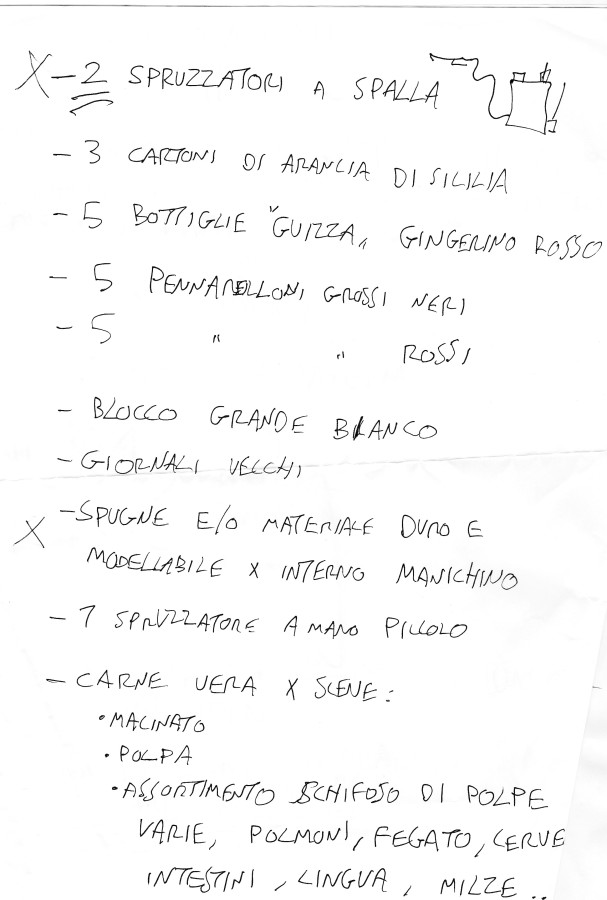 X - 2 SPRUZZATORI A SPALLA
- 3 CARTONI DI ARANCIA DI SICILIA
- 5 BOTTIGLIE "GUIZZA" GINGERINO ROSSO
- 5 PENNARELLONI GROSSI NERI
- 5 " " ROSSI
- BLOCCO GRANDE BIANCO
- GIORNALI VECCHI
X - SPUGNE E/O MATERIALE DURO E
MODELLABILE X INTERNO MANICHINO
- 1 SPRUZZATORE A MANO PICCOLO
- CARNE VERA X SCENE:
• MACINATO
• POLPA
• ASSORTIMENTO SCHIFOSO DI POLPE
VARIE, POLMONI, FEGATO, CERVE
INTESTINI, LINGUA, MILZE ..